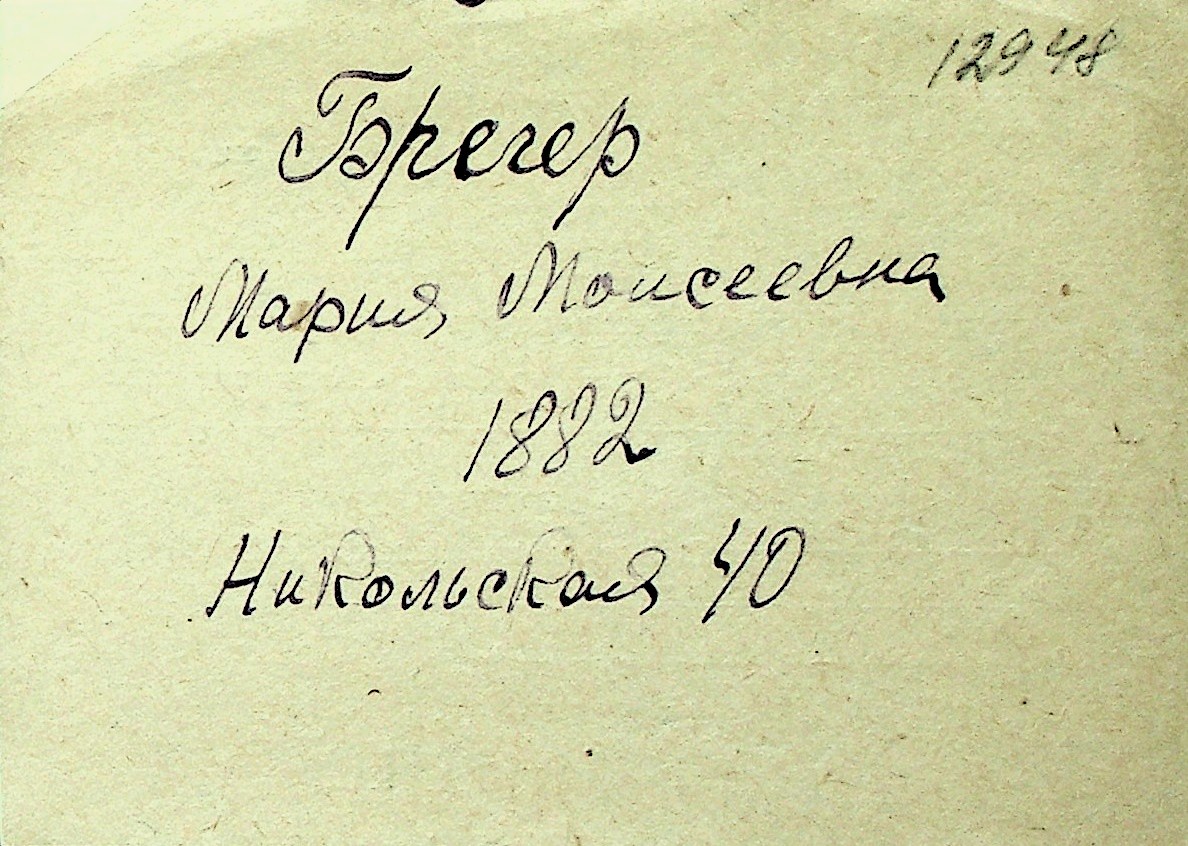 12948
Брегер
Мария Моисеевна
1882
Никольская 40